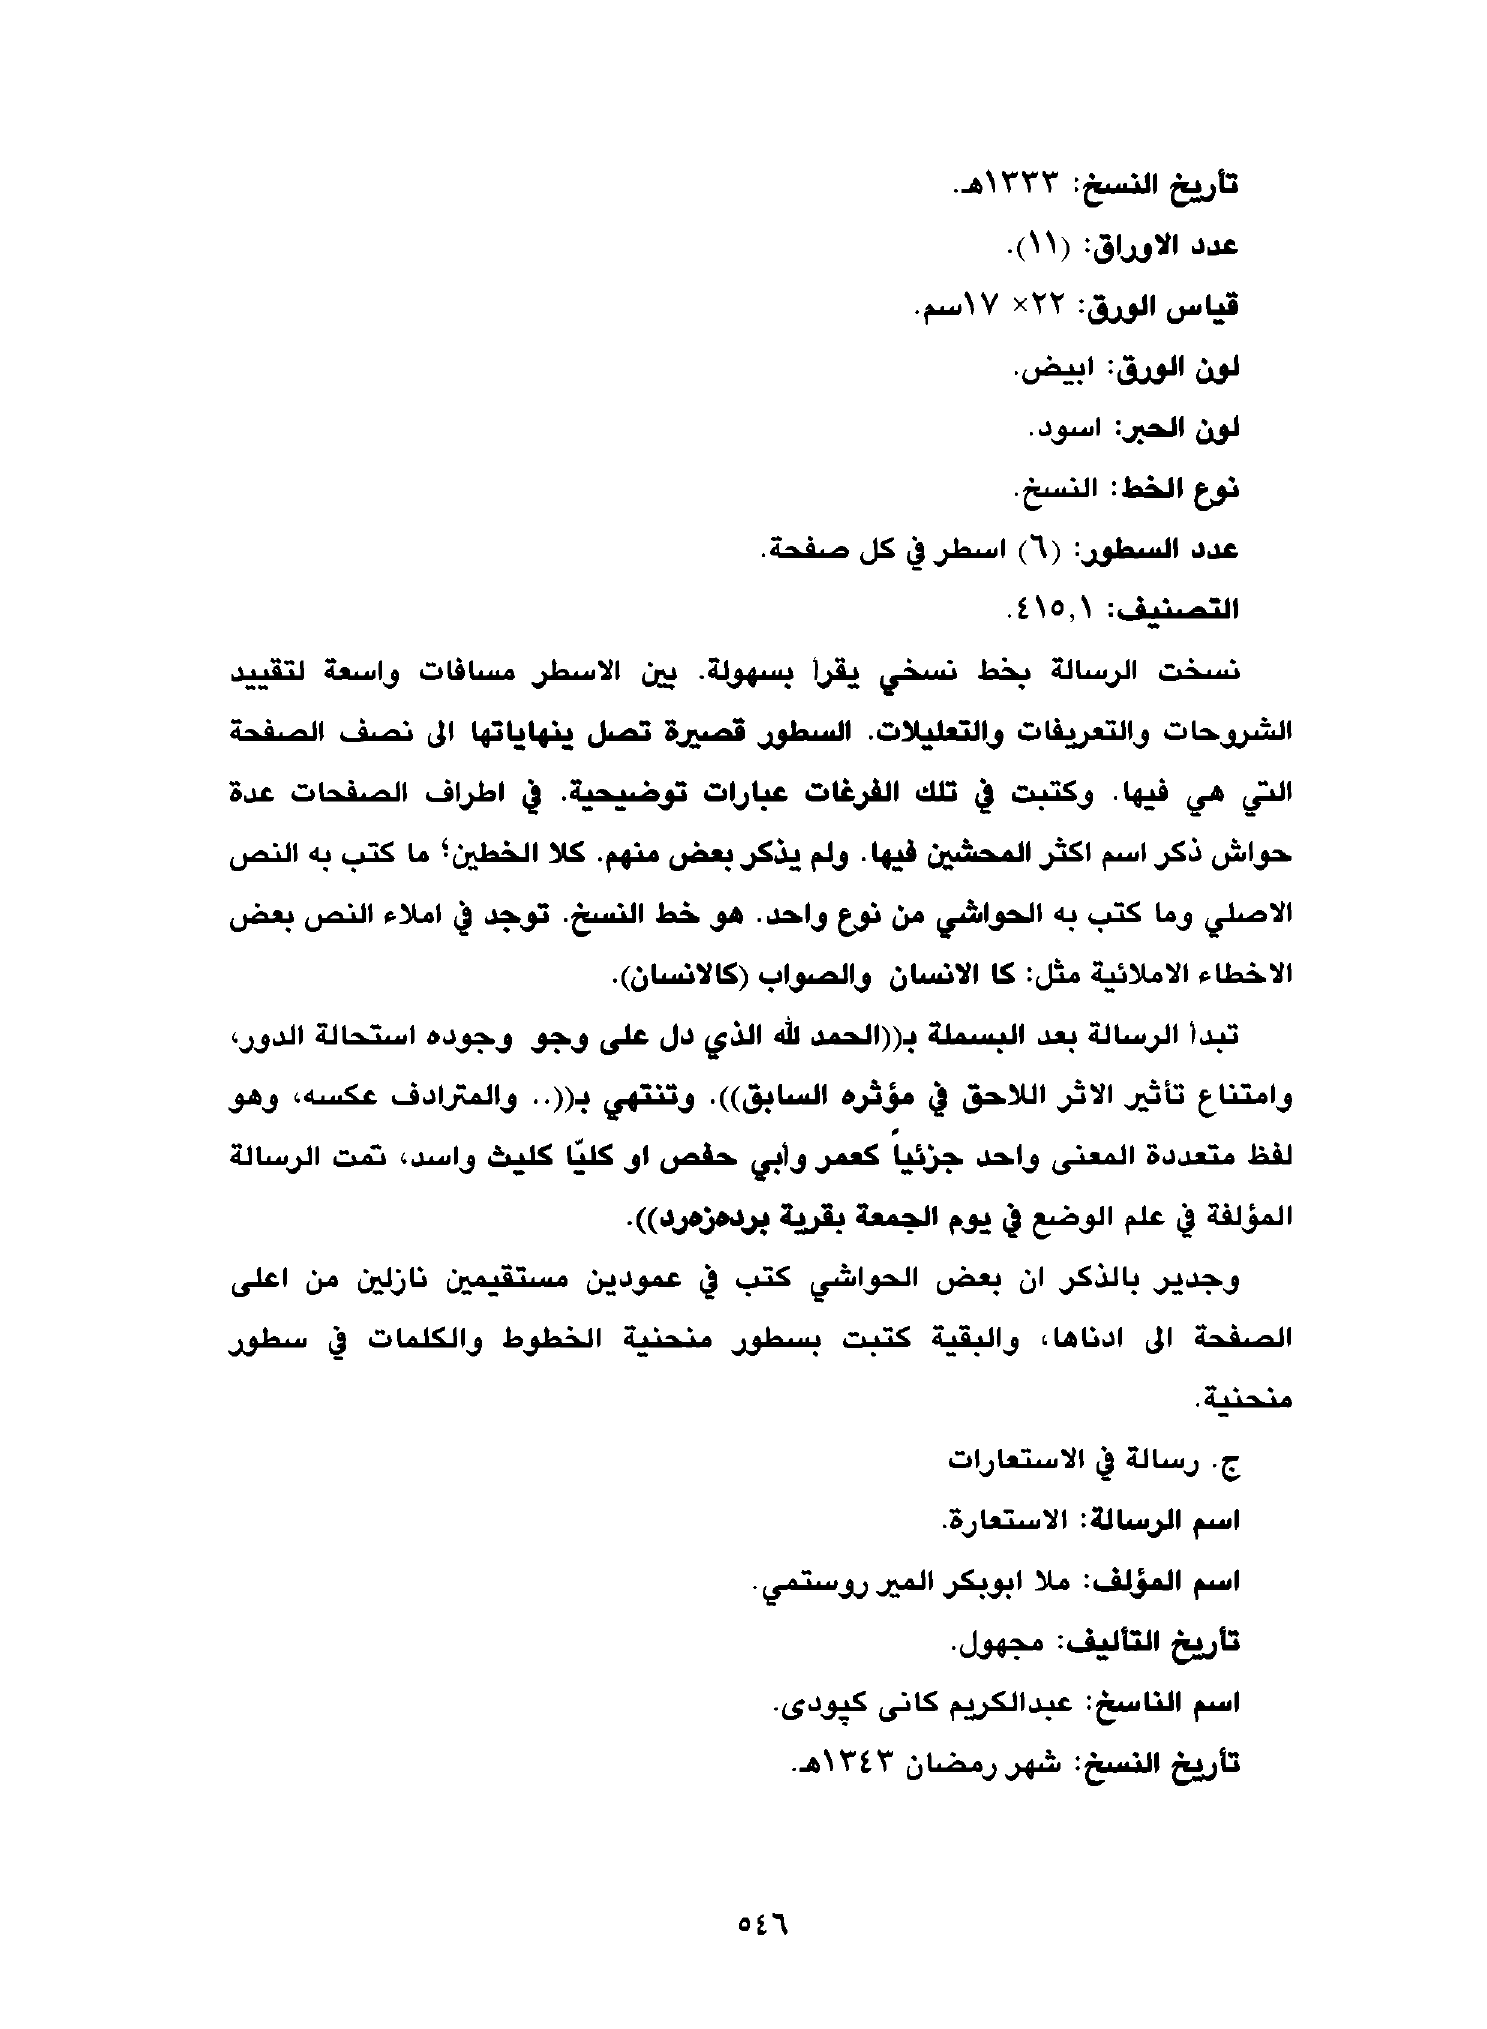 تأريخ النسخ: ١٣٣٣هـ.
عدد الاوراق: (١١).
قياس الورق: ٢٢× ١٧سم.
لون الورق: ابيض.
لون الحبر: اسود.
نوع الخط: النسخ.
عدد السطور: (٦) اسطر في كل صفحة.
التصنيف: ٤١٥,١.
نسخت الرسالة بخط نسخي يقرأ بسهولة. بين الاسطر مسافات واسعة لتقييد
الشروحات والتعريفات والتعليلات. السطور قصيرة تصل ينهاياتها الى نصف الصفحة
التي هي فيها. وكتبت في تلك الفرغات عبارات توضيحية. في اطراف الصفحات عدة
حواش ذكر اسم اكثر المحشين فيها. ولم يذكر بعض منهم. كلا الخطين؛ ما كتب به النص
الاصلي وما كتب به الحواشي من نوع واحد. هو خط النسخ. توجد في املاء النص بعض
الاخطاء الاملائية مثل: كا الانسان والصواب (كالانسان).
تبدأ الرسالة بعد البسملة بـ((الحمد لله الذي دل على وجو وجوده استحالة الدور،
وامتناع تأثير الاثر اللاحق في مؤثره السابق)). وتنتهي بـ((.. والمترادف عكسه، وهو
لفظ متعددة المعنى واحد جزئياً كعمر وأبي حفص او كليّا كليث واسد، تمت الرسالة
المؤلفة في علم الوضع في يوم الجمعة بقرية بردەزەرد)).
وجدير بالذكر ان بعض الحواشي كتب في عمودين مستقيمين نازلين من اعلى
الصفحة الى ادناها، والبقية كتبت بسطور منحنية الخطوط والكلمات في سطور
منحنية.
ج. رسالة في الاستعارات
اسم الرسالة: الاستعارة.
اسم المؤلف: ملا ابوبكر المير روستمي.
تأريخ التأليف: مجهول.
اسم الناسخ: عبدالكريم كانى كپودى.
تأريخ النسخ: شهر رمضان ١٣٤٣هـ.
٥٤٦